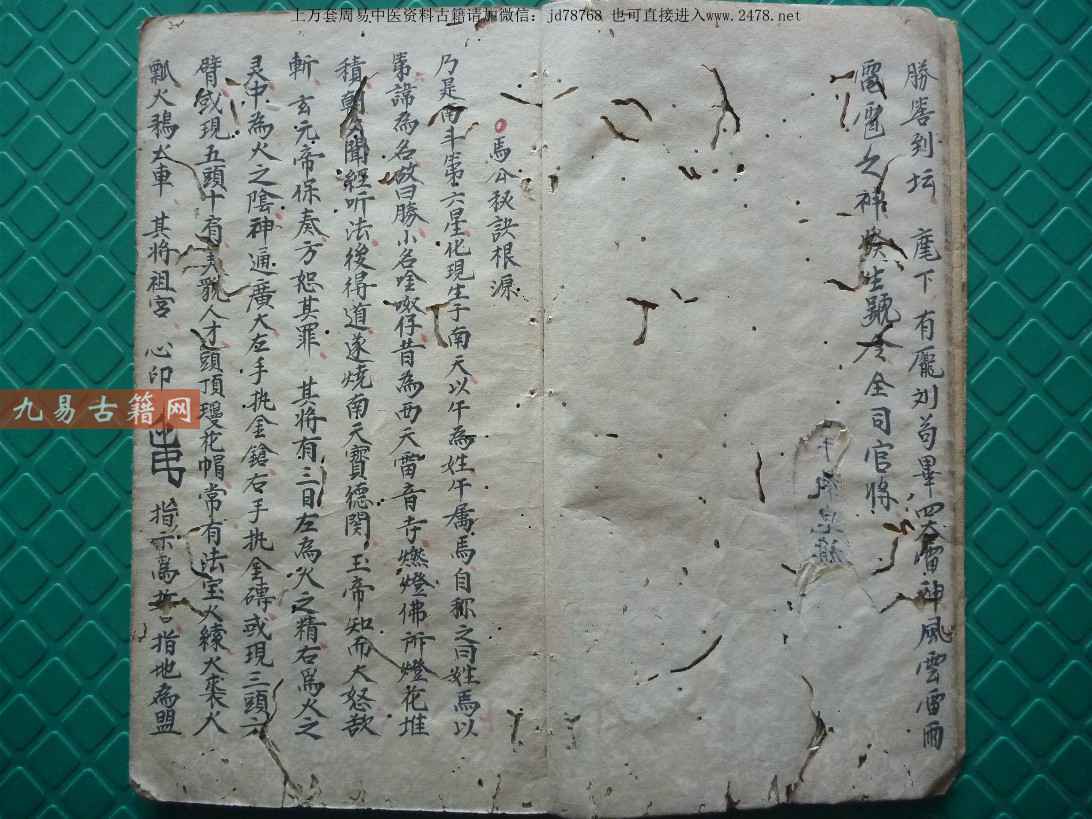 上万套周易中医资料古籍请加微信：jd78768 也可直接进入www.2478.net
勝嚳到坛 麾下有龐刘苟畢四大雷神風雲雷雨
電雹之神 生號令全司官将
馬公秘訣根源
乃是南斗第六星化現生于南天以午為姓午属馬自称之曰姓馬以
第諱為名故曰勝小名 仔昔為西天雷音寺燃燈佛所燈花堆
積朝久聞經听法後得道遂焼南天寳德関玉帝知而大怒敖
斬玄元帝保奏方恕其罪 其将有三目左為火之精右為火之
灵中為火之隂神通廣大左手执金鎗右手执金磚或現三頭六
臂或現五頭十肩 貌人才頭頂 花帽常有法宝火 火
瓢火鴉火車 其将祖宫 心印 指示為 指地為盟
九易古籍网